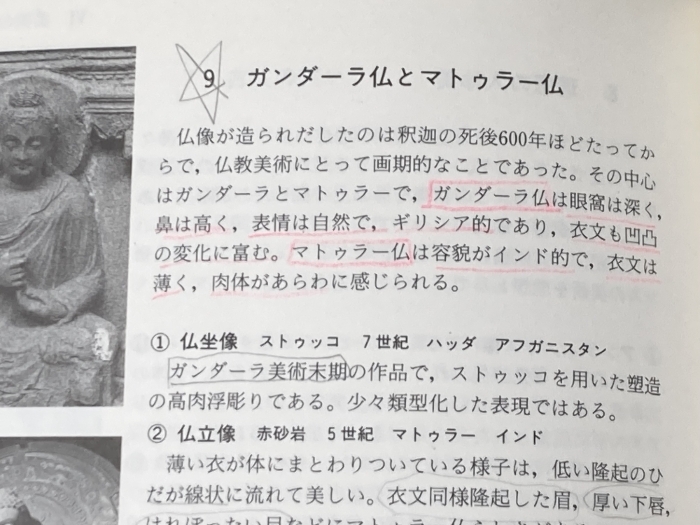 9 ガンダーラ仏とマトゥラー仏
仏像が造られだしたのは釈迦の死後600年ほどたってか
らで，仏教美術にとって画期的なことであった。その中心
はガンダーラとマトゥラーで，ガンダーラ仏は眼窩は深く，
鼻は高く，表情は自然で，ギリシア的であり，衣文も凹凸
の変化に富む。マトゥラー仏は容貌がインド的で，衣文は
薄く，肉体があらわに感じられる。
① 仏坐像 ストゥッコ 7世紀 ハッダ アフガニスタン
ガンダーラ美術末期の作品で，ストゥッコを用いた塑造
の高肉浮彫りである。少々類型化した表現ではある。
② 仏立像 赤砂岩 5世紀 マトゥラー インド
薄い衣が体にまとわりついている様子は，低い隆起のひ
だが線状に流れて美しい。衣文同様隆起した眉，厚い下唇，
はれぼったい目などにマトゥラー仏